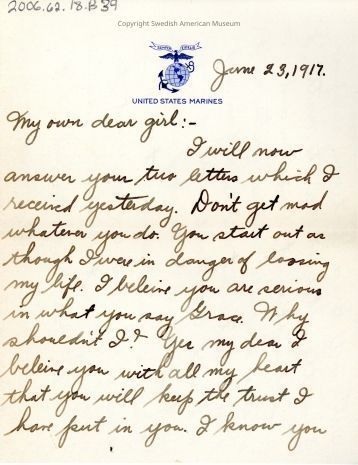 2006.62.18.B 39
Copyright Swedish American Museum
SEMPER FIDELIS
UNITED STATES MARINES
June 23, 1917.
My own dear girl:-
I will now
answer your two letters which I
received yesterday. Don't get mad
whatever you do. You start out as
though I were in danger of loosing
my life. I beleive you are serious
in what you say Grace. Why
shouldn't I? Yes my dear I
beleive you with all my heart
that you will keep the trust I
have put in you. I know you